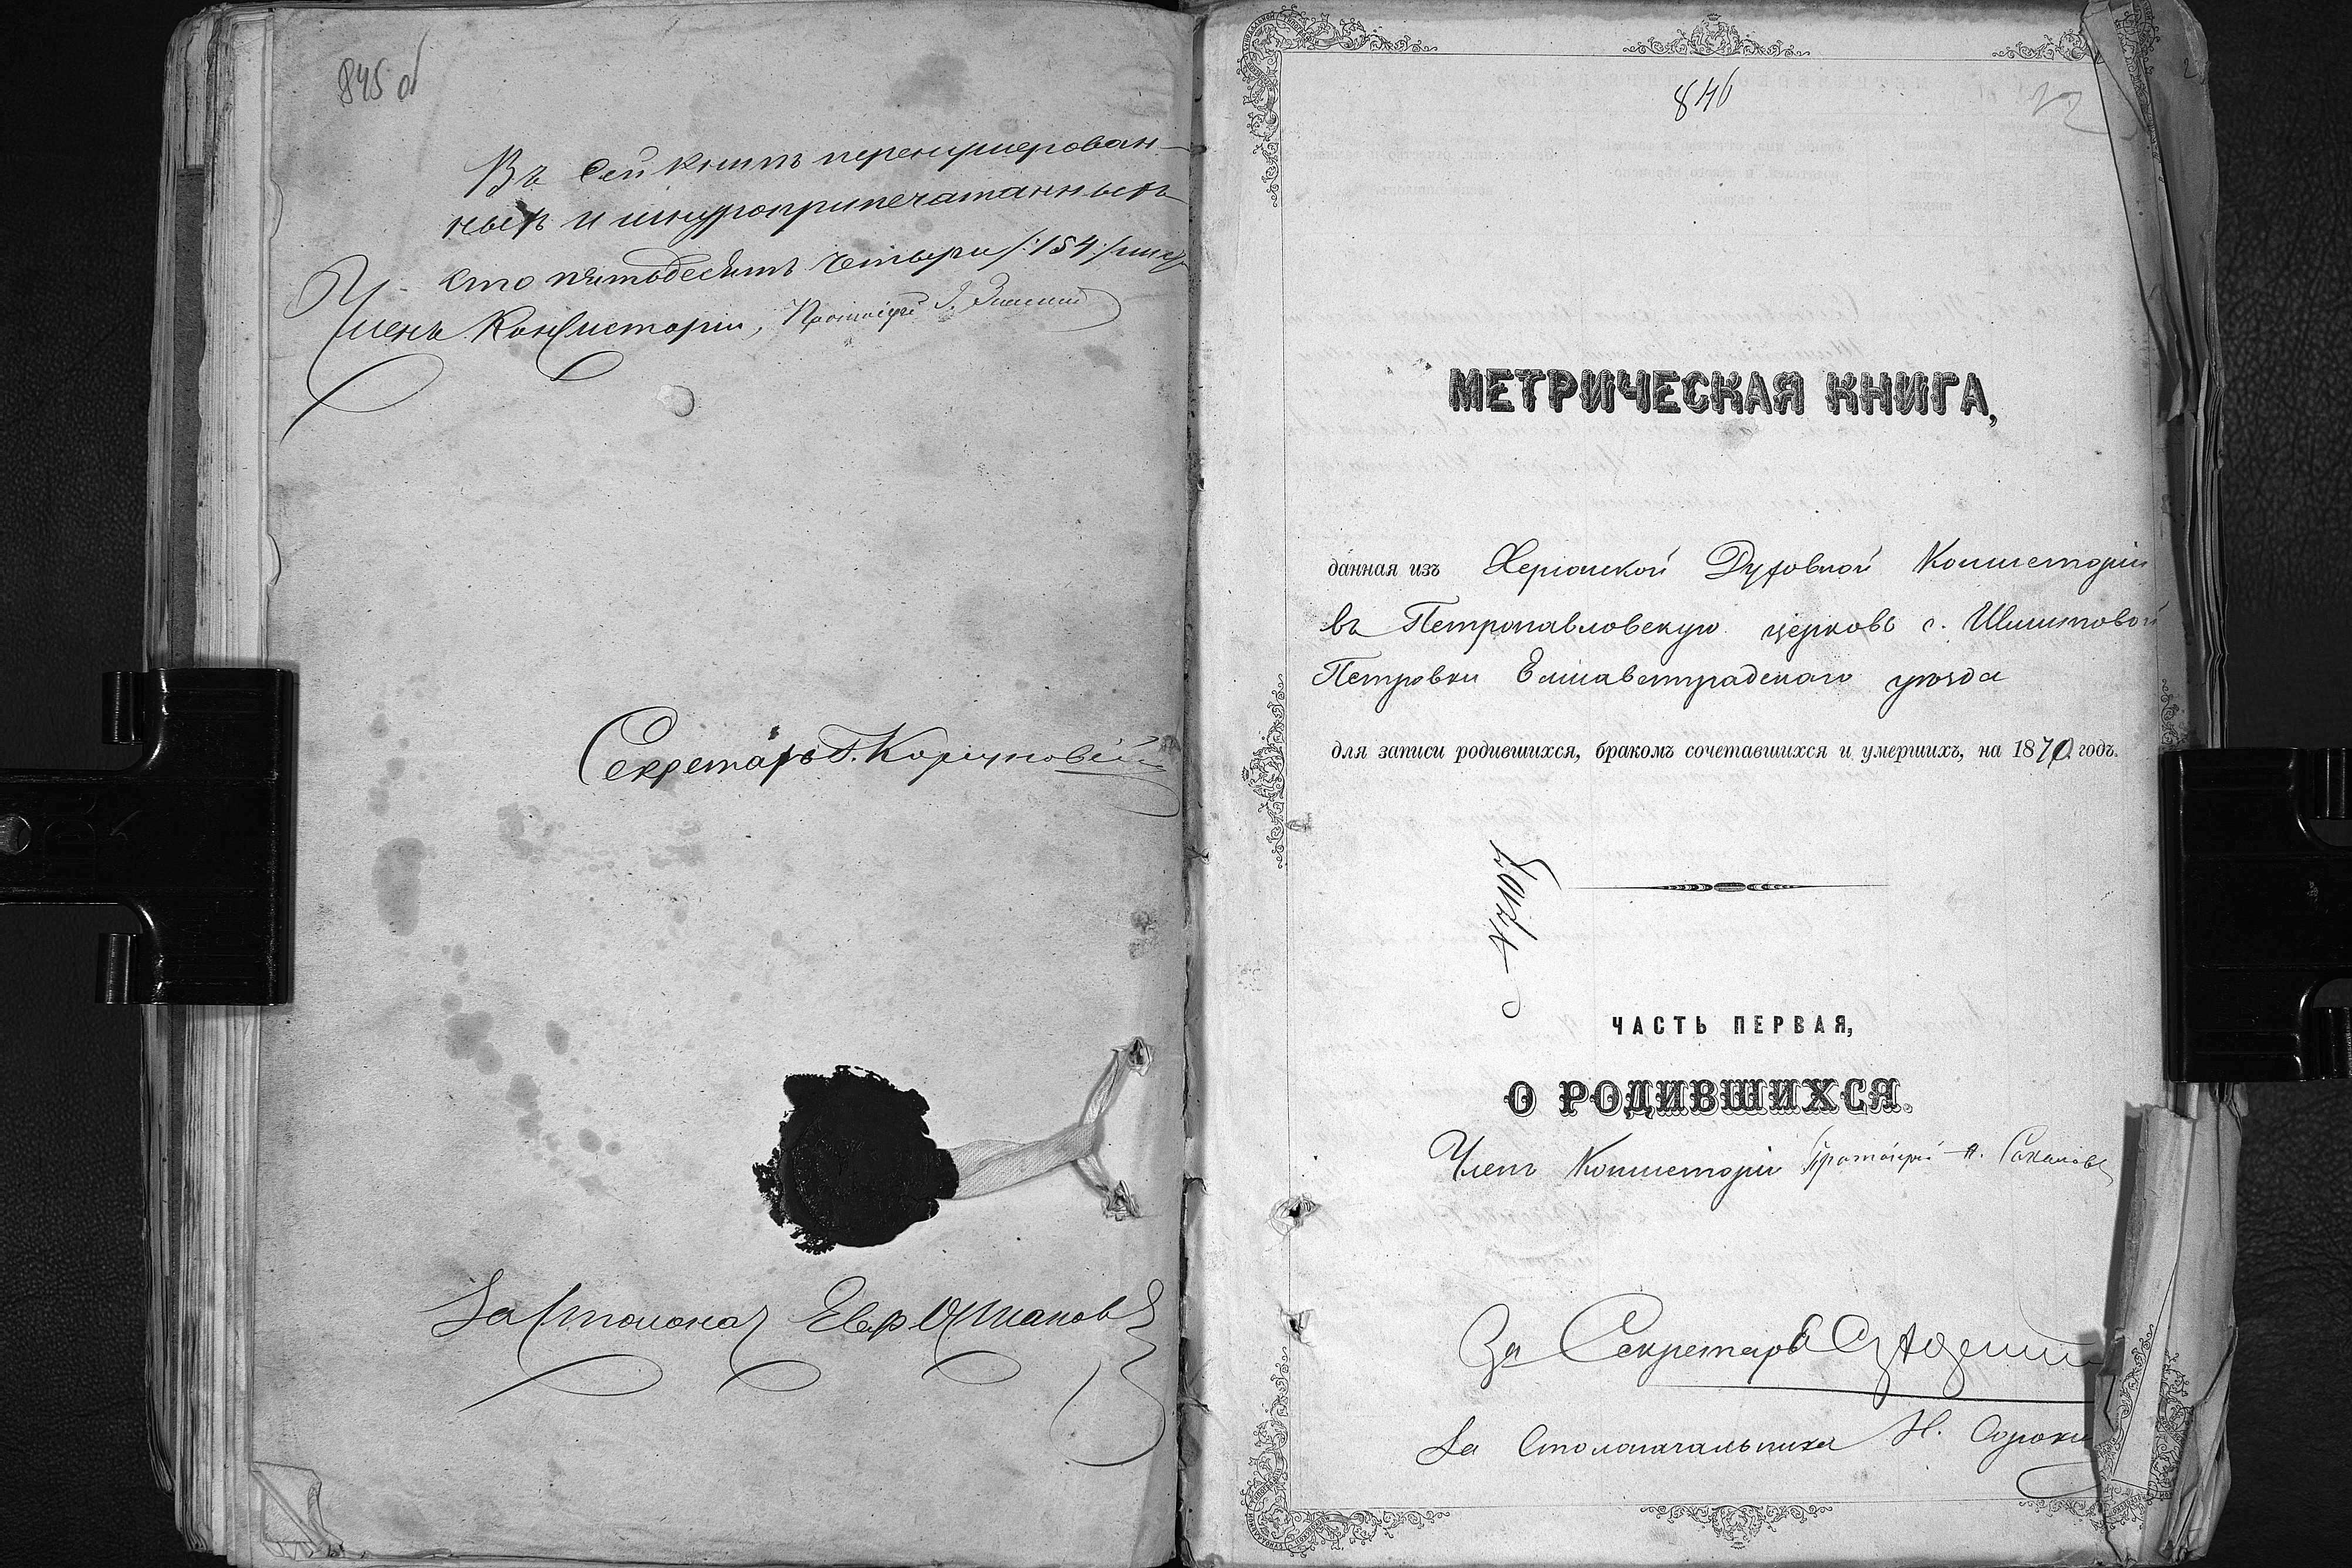 845 об
Въ сей книгѣ перенумерован-
ныхъ и шнуроприпечатанныхъ
сто пятьдесятъ четыре /:154:/ лист.
Членъ Консисторіи, Протоіерей
Секретарь Г.
За Столонач
846
МЕТРИЧЕСКАЯ КНИГА,
данная изъ Херсонской Духовной Консисторіи
въ Петропавловскую церковь с. Шишповой
Петровки Елисаветградскаго уѣзда
для записи родившихся, бракомъ сочетавшихся и умершихъ, на 1870 годъ.
ЧАСТЬ ПЕРВАЯ,
О РОДИВШИХСЯ.
Членъ Консисторіи Протоіерей А. Соколовъ
За Секретаря
За Столоначальника Н. Сороки